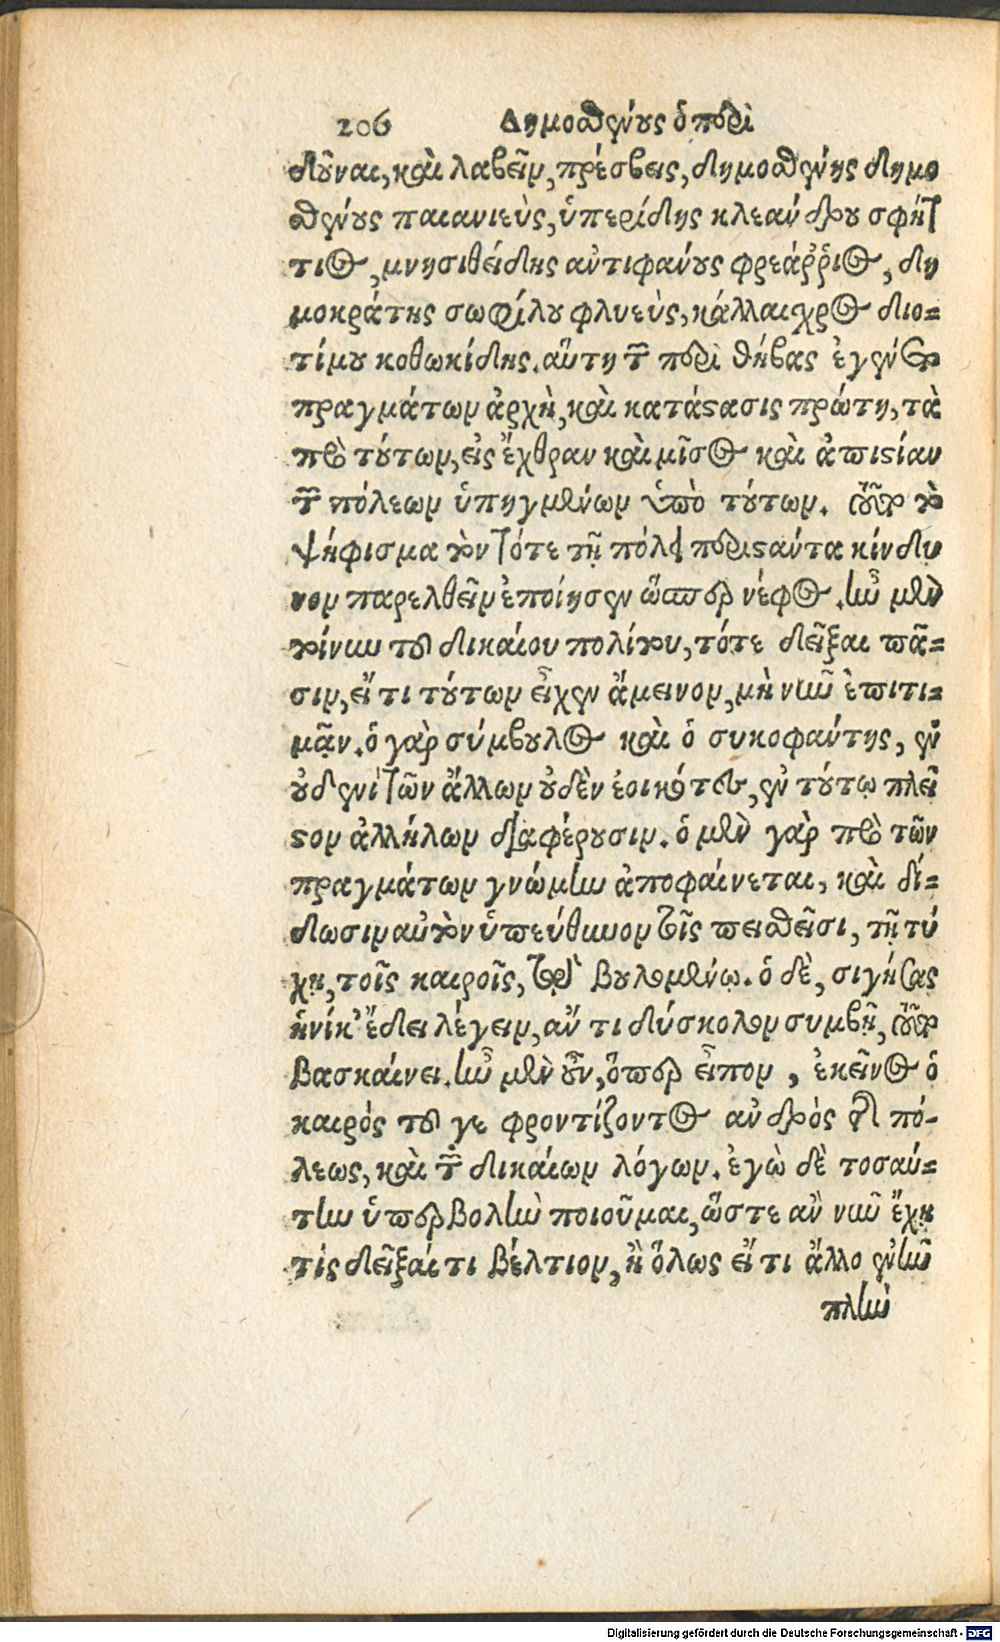 206 Δημοσθένους ὁ περὶ
δοῦναι, καὶ λαβεῖν, πρέσβεις, δημοσθένης δημο
σθένους παιανιεὺς, ὑπερίδης κλεάνδρου σφήτ
τιος, μνησιθείδης ἀντιφάνους φρεάῤῥιος, δη
μοκράτης σωφίλου φλυεὺς, κάλλαισχρος διο-
τίμου κοθωκίδης. αὕτη τῶν περὶ θήβας ἐγένετο
πραγμάτων ἀρχὴ, καὶ κατάστασις πρώτη, τὰ
πρὸ τούτων, εἰς ἔχθραν καὶ μῖσος καὶ ἀπιστίαν
τῶν πόλεων ὑπηγμένων ὑπὸ τούτων. τοῦτο τὸ
ψήφισμα τὸν τότε τῇ πόλει περιστάντα κίνδυ
νον παρελθεῖν ἐποίησεν ὥσπερ νέφος. ἦν μὲν
τοίνυν τοῦ δικαίου πολίτου, τότε δεῖξαι πᾶ-
σιν, εἴ τι τούτων εἶχεν ἄμεινον, μὴ νῦν ἐπιτι-
μᾷν. ὁ γὰρ σύμβουλος καὶ ὁ συκοφάντης, ἐν
οὐδενὶ τῶν ἄλλων οὐδὲν ἐοικότες, ἐν τούτῳ πλεῖ
στον ἀλλήλων διαφέρουσιν. ὁ μὲν γὰρ πρὸ τῶν
πραγμάτων γνώμην ἀποφαίνεται, καὶ δί-
δωσιν αὑτὸν ὑπεύθυνον τοῖς πεισθεῖσι, τῇ τύ
χῃ, τοῖς καιροῖς, τῷ βουλομένῳ. ὁ δὲ, σιγήσας
ἡνίκ' ἔδει λέγειν, ἄν τι δύσκολον συμβῇ, τοῦτο
βασκαίνει. ἦν μὲν οὖν, ὅπερ εἶπον, ἐκεῖνος ὁ
καιρὸς τοῦ γε φροντίζοντος ἀνδρὸς τῆς πό-
λεως, καὶ τῶν δικαίων λόγων. ἐγὼ δὲ τοσαύ-
την ὑπερβολὴν ποιοῦμαι, ὥστε ἂν νῦν ἔχῃ
τὶς δεῖξαί τι βέλτιον, ἢ ὅλως εἴ τι ἄλλο ἐνῆν
πλὴν
Digitalisierung gefördert durch die Deutsche Forschungsgemeinschaft - DFG